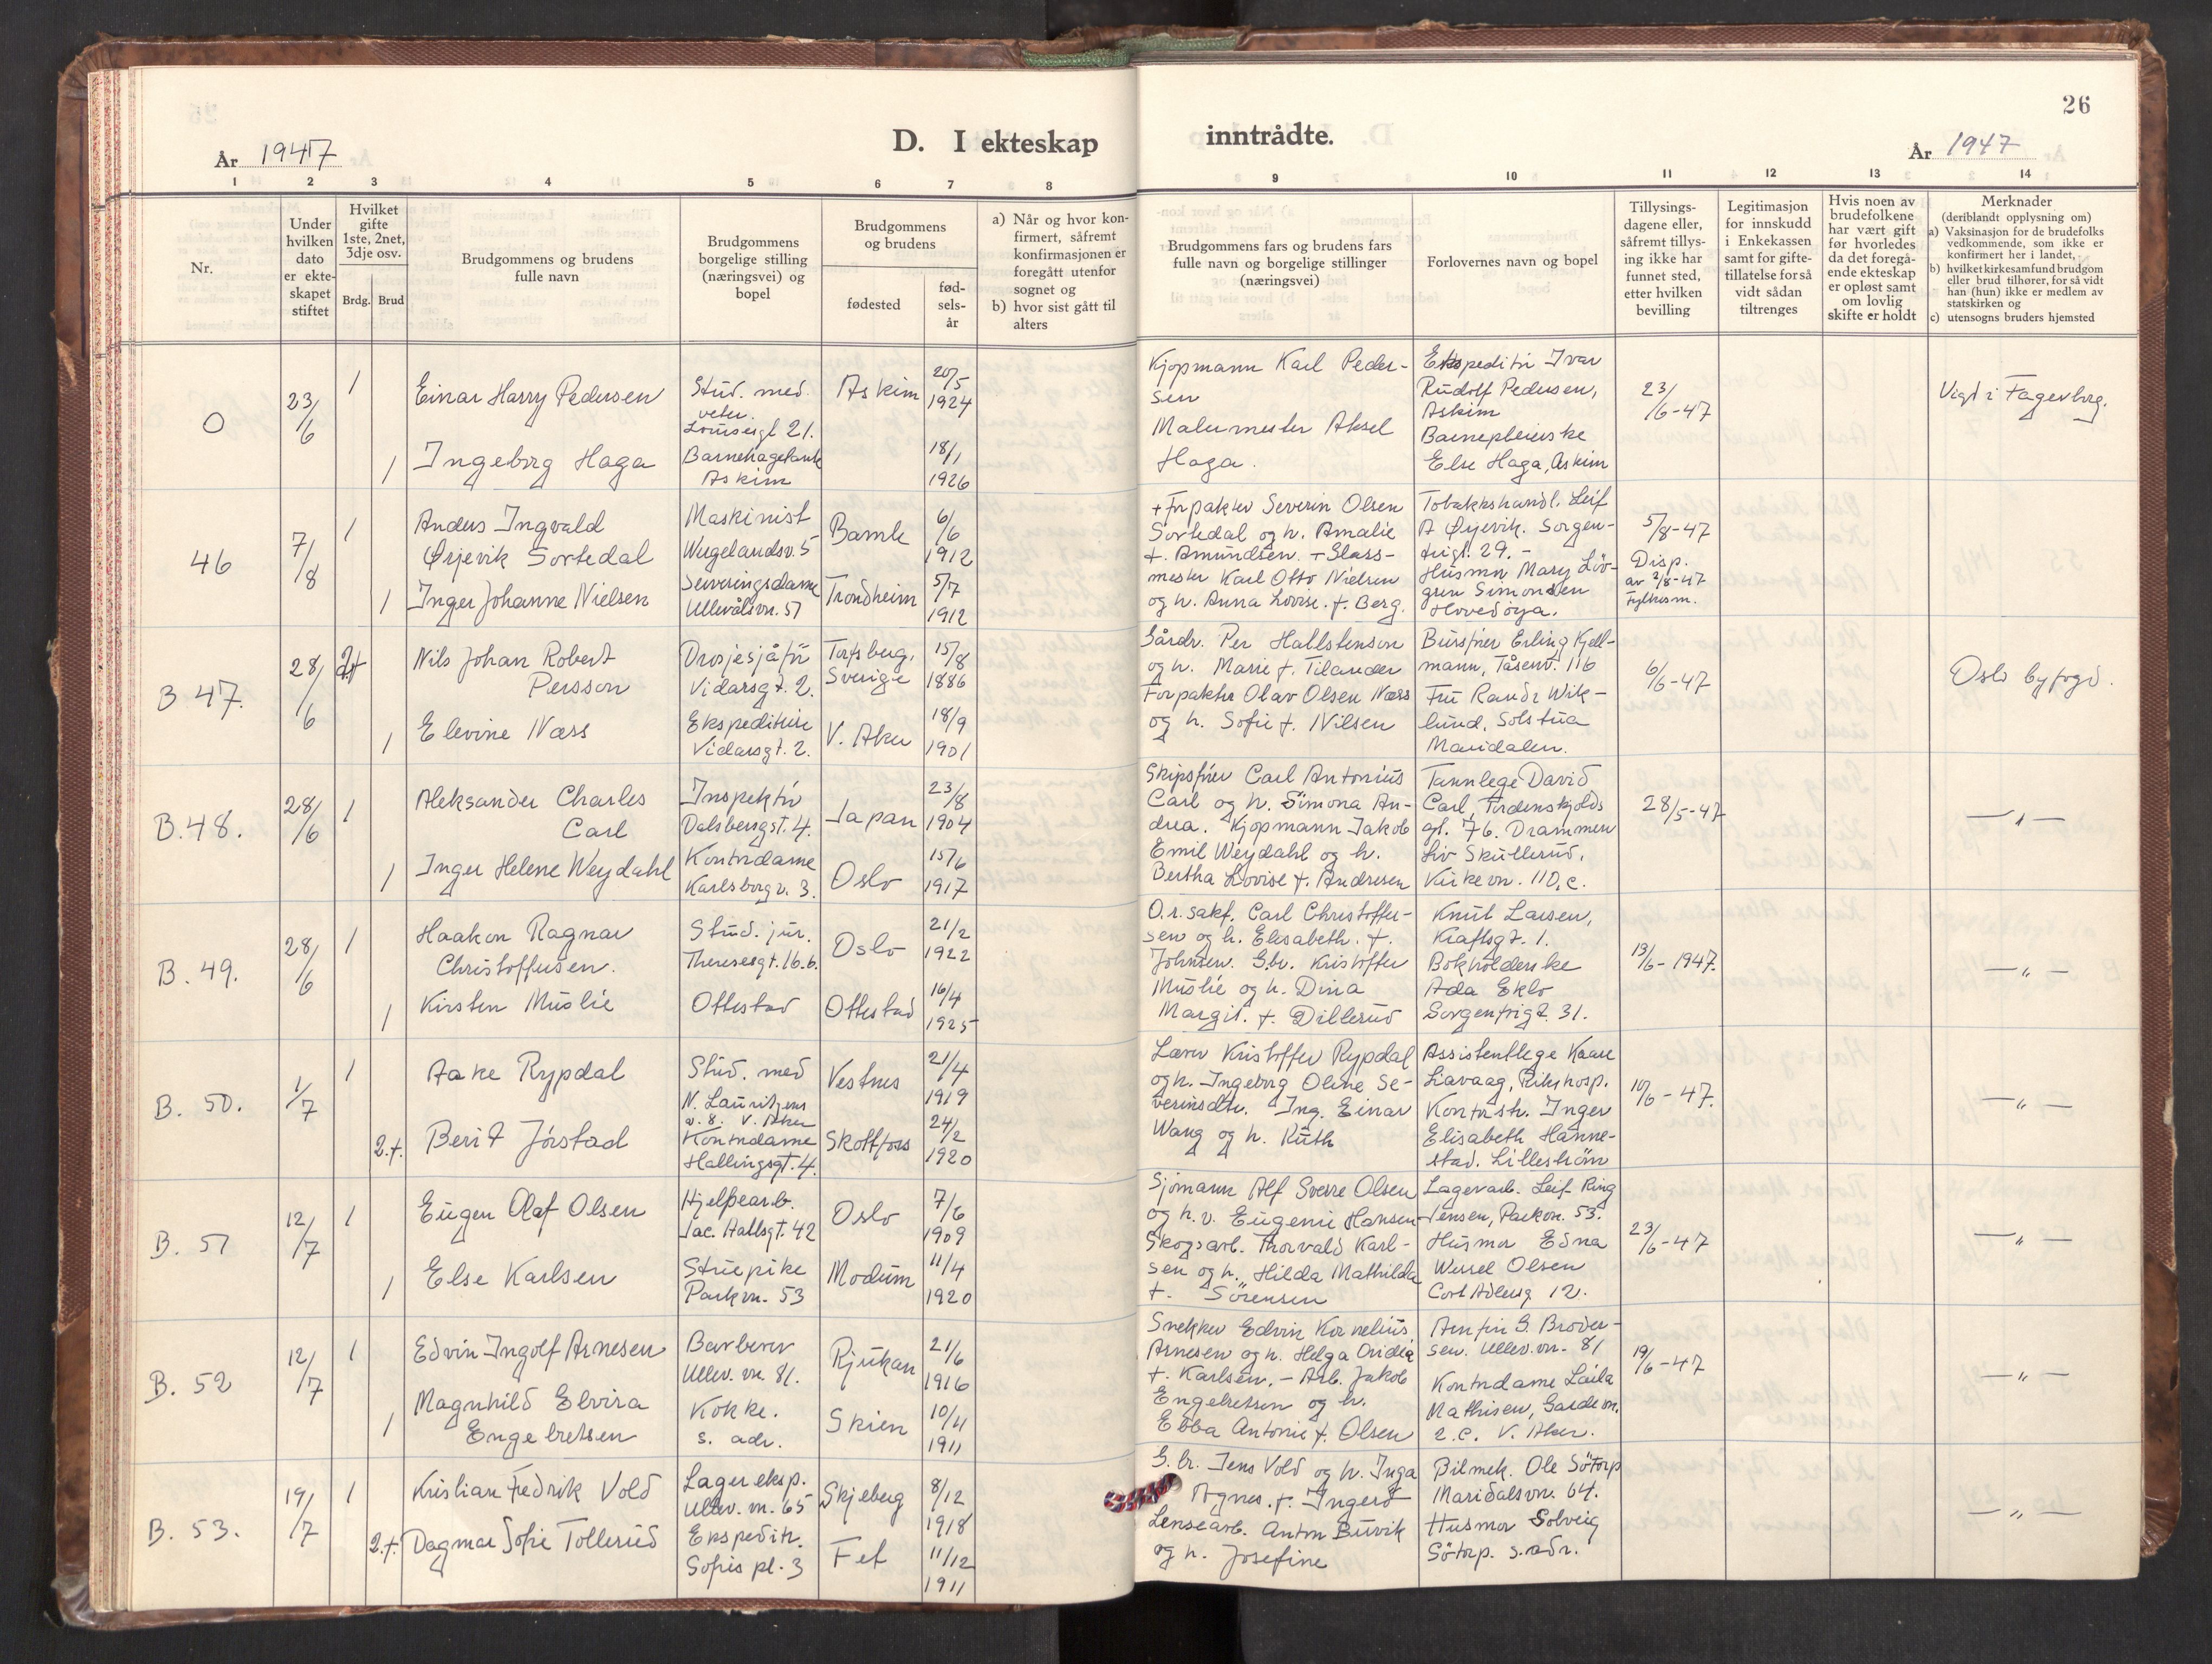 26
D. I ekteskap inntrådte.
År 1947
År 1947
1 2 3 4 5 6 7 8 9 10 11 12 13 14
Nr.
Under hvilken dato er ekte-skapet stiftet
Hvilket gifte 1ste, 2net, 3dje osv.
Brdg. Brud
Brudgommens og brudens fulle navn
Brudgommens borgelige stilling (næringsvei) og bopel
Brudgommens og brudens
fødested
fød-sels-år
a) Når og hvor kon-firmert, såfremt konfirmasjonen er foregått utenfor sognet og
b) hvor sist gått til alters
Brudgommens fars og brudens fars fulle navn og borgelige stillinger (næringsvei)
Forlovernes navn og bopel
Tillysings-dagene eller, såfremt tillys-ing ikke har funnet sted, etter hvilken bevilling
Legitimasjon for innskudd i Enkekassen samt for gifte-tillatelse for så vidt sådan tiltrenges
Hvis noen av brudefolkene har vært gift før hvorledes da det foregå-ende ekteskap er opløst samt om lovlig skifte er holdt
Merknader
(deriblandt opplysning om)
a) Vaksinasjon for de brudefolks vedkommende, som ikke er konfirmert her i landet,
b) hvilket kirkesamfund brudgom eller brud tilhører, for så vidt han (hun) ikke er medlem av statskirken og
c) utensogns bruders hjemsted
O
23/6
1
Einar Harry Pedersen
Stud. med.
veter.
Louisesgt 21.
Askim
20/5
1924
1
Ingeborg Haga
Askim
18/1
1926
Kjøpmann Karl Peder-
sen
Malermester Aksel
Haga.
Ekspeditør Ivar
Rudolf Pedersen,
Askim
Barnepleierske
Else Haga, Askim
23/6-47
Vigd i Fagerborg.
46
7/8
1
Anders Ingvald
Ørjevik Sortedal
Maskinist
Wegelandsv. 5
Bamle
6/6
1912
1
Inger Johanne Nielsen
Serveringsdame
Ullevålsvn. 57
Trondheim
5/7
1912
+ Forpakter Severin Olsen
Sortedal og h. Amalie
f. Amundsen. + Glass-
mester Karl Otto Nielsen
og h. Anna Lovise. f. Berg.
Tobakkshandl. Leif
A Ørjevik. Sorgen-
frigt. 29. -
Husmor Mary Löv-
gren Simonsen
Hovedøya.
5/8-47
Disp.
av 2/8-47
Fylkesm.
B 47.
28/6
2+
Nils Johan Robert
Persson
Drosjesjåfør
Vidarsgt. 2.
Sverige
15/8
1886
1
Elevine Næss
Ekspeditrise
Vidarsgt. 2.
V. Aker
18/9
1901
Gårdr. Per Hallstenson
og h. Marie f. Tilander
Forpakter Olav Olsen Næss
og h. Sofie f. Nilsen
Bursjner Erling Kjell-
mann, Tåsenv. 116
Fru Randi Wik-
lund, Solstua
Maridalen.
6/6-47
Oslo byfogd.
B. 48.
28/6
1
Aleksander Charles
Carl
Inspektør
Dalsbergst. 4.
Japan
23/8
1904
1
Inger Helene Weydahl
Kontordame
Karlsborgv. 3.
Oslo
15/6
1917
Skipsfører Carl Antonius
Carl og h. Simona An-
drea. Kjøpmann Jakob
Emil Weydahl og h.
Bertha Lovise f. Andresen
Tannlege David
Carl, Tordenskjolds
gt. 76. Drammen
Liv Skullerud,
Kirkevn. 110.c.
28/5-47
— " —
B. 49.
28/6
1
Haakon Ragnar
Christoffersen.
Stud. jur.
Theresesgt. 16.b.
Oslo
21/2
1922
1
Kirsten Muslie
Ottestad
Ottestad
16/4
1925
O.r.sakf. Carl Christoffer-
sen og h. Elisabeth. f.
Johnsen. Gbr. Kristoffer
Muslie og h. Dina
Margit. f. Dillerud
Knut Larsen,
Kraftsgt. 1.
Bokholderske
Ada Eklo
Sorgenfrigt. 31.
13/6-1947.
— " —
B. 50.
1/7
1
Aake Rypdal
Stud. med
N. Lauritzens
v. 8. V. Aker
Vestnes
21/4
1919
2.+.
Berit Jörstad
Kontordame
Hallingsgt. 4.
Skotfoss
24/2
1920
Lærer Kristoffer Rypdal
og h. Ingeborg Oline Se-
verinsdtr. Ing. Einar
Wang og h. Ruth
Assistentlege Kaare
Liavaag, Rikshosp.
Kontorstr. Inger
Elisabeth Hanne-
stad. Lilleström
10/6-47.
— " —
B. 51
12/7
1
Eugen Olaf Olsen
Hjelpearb.
Jac. Aallsgt. 42
Oslo
7/6
1909
1
Else Karlsen
Parkvn. 53
Modum
11/4
1920
Sjømann Alf Sverre Olsen
og h. v. Eugenie Hansen
Skogsarb. Thorvald Karl-
sen og h. Hilda Mathilda
f. Sörensen
Lagerarb. Leif Ring
Jensen, Parkvn. 53.
Husmor Edna
Wessel Olsen
Cort Adelersg 12.
23/6-47
— " —
B. 52
12/7
1
Edvin Ingolf Arnesen
Barberer
Ullev. vn. 81.
Rjukan
21/6
1916
1
Magnhild Elvira
Engebretsen
Kokke.
s. adr.
Skien
10/4
1911
Snekker Edvin Kornelius
Arnesen og h. Helga Ovidia
f. Karlsen. - Arb. Jakob
Engebretsen og h.
Ebba Antonie f. Olsen
Arnfin G. Broder-
sen. Ullev. vn. 81
Kontordame Laila
Mathisen, Gardevn.
2.c. V. Aker.
19/6-47
— " —
B. 53.
19/7
1
Kristian Fredrik Vold
Lagereksp.
Ullev. vn. 65
Skjeberg
8/12
1918
2.+.
Dagmar Sofie Tollerud
Ekspeditr.
Sofies pl. 3
Fet
11/12
1911
G.br. Jens Vold og h. Inga
Agnes. f. Ingerø
Lensearb. Anton Buvik
og h. Josefine
Bilmek. Ole Sötorp
Maridalsvn. 64.
Husmor Solveig
Sötorp. s.adr.
— " —